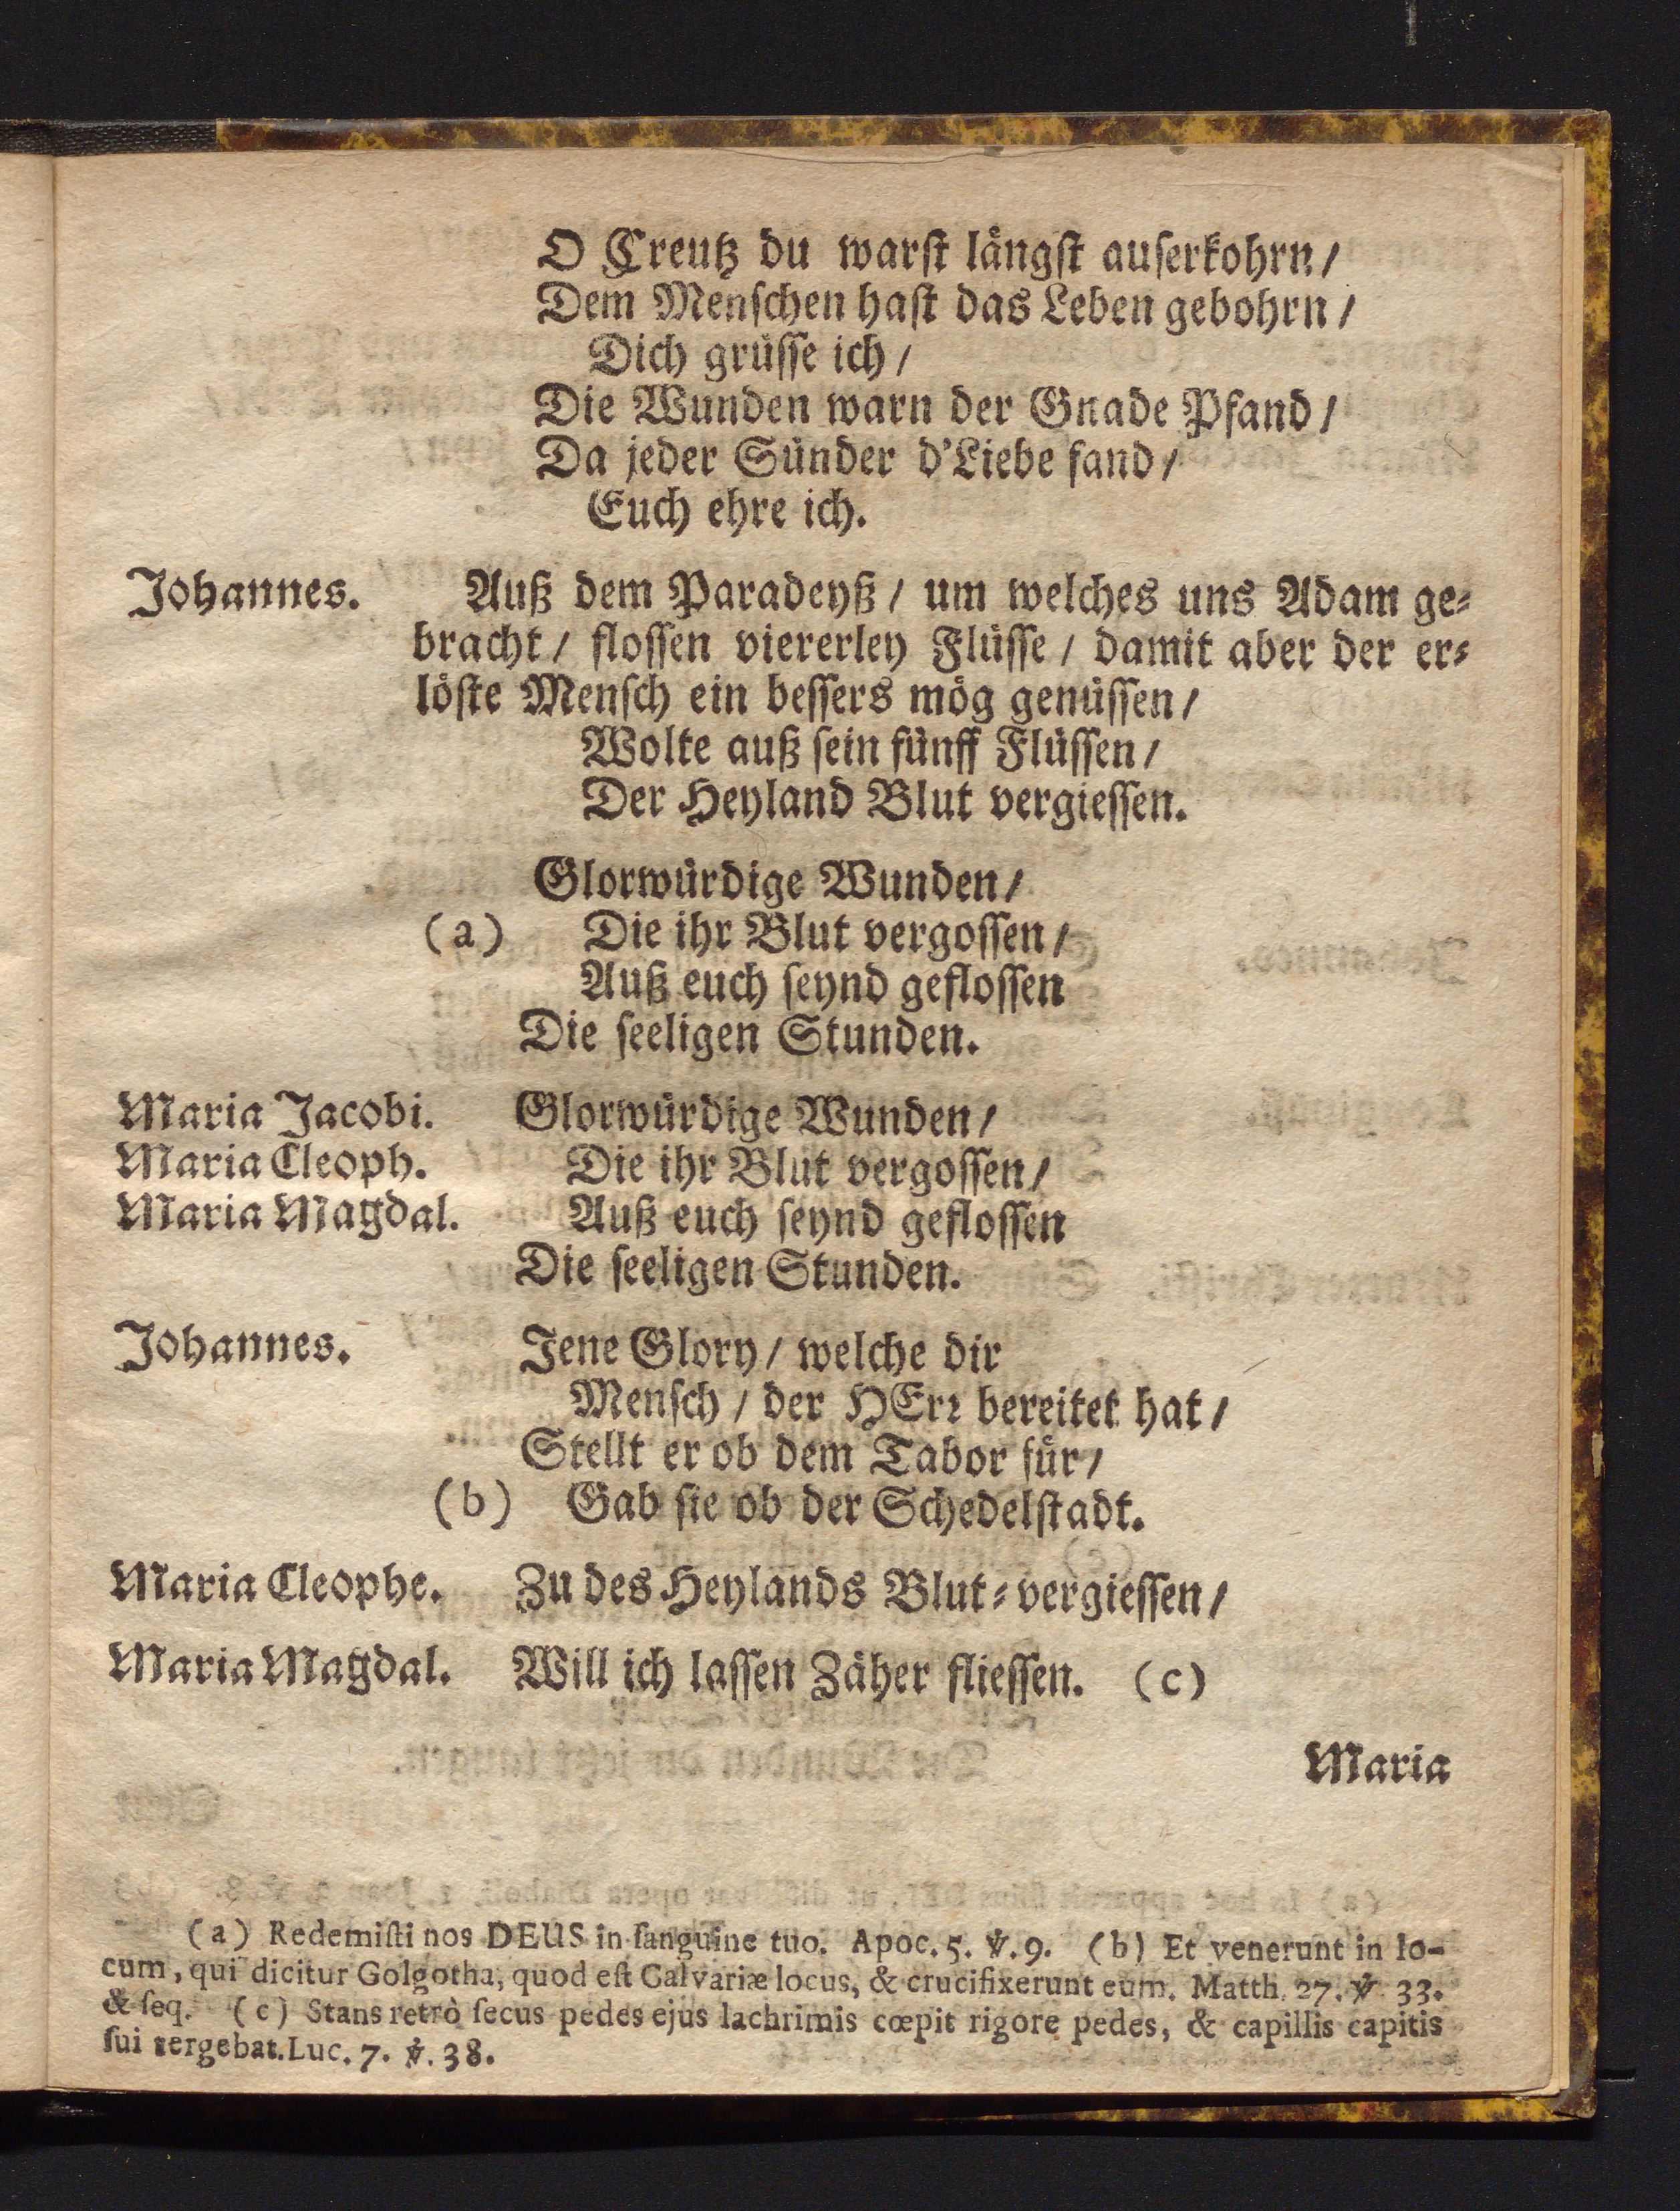 O Creutz du warſt längſt auserkohrn/
Dem Menſchen haſt das Leben gebohrn/
Dich grüſſe ich/
Die Wunden warn der Gnade Pfand/
Da jeder Sünder d'Liebe fand/
Euch ehre ich.
Johannes. Auß dem Paradeyß/ um welches uns Adam ge⸗
bracht/ floſſen viererley Flüſſe/ damit aber der er⸗
löſte Menſch ein beſſers mög genüſſen/
Wolte auß ſein fünff Flüſſen/
Der Heyland Blut vergieſſen.
Glorwürdige Wunden/
(a) Die ihr Blut vergoſſen/
Auß euch ſeynd gefloſſen
Die ſeeligen Stunden.
Maria Jacobi. Glorwürdige Wunden/
Maria Cleoph. Die ihr Blut vergoſſen/
Maria Magdal. Auß euch ſeynd gefloſſen
Die ſeeligen Stunden.
Johannes. Jene Glory/ welche dir
Menſch/ der HErꝛ bereitet hat/
Stellt er ob dem Tabor für/
(b) Gab ſie ob der Schedelſtadt.
Maria Cleophe. Zu des Heylands Blut⸗vergieſſen/
Maria Magdal. Will ich laſſen Zäher flieſſen. (c)
Maria
(a) Redemiſti nos DEUS in ſanguine tuo. Apoc. 5. ℣. 9. (b) Et venerunt in lo-
cum, qui dicitur Golgotha, quod eſt Calvariæ locus, & crucifixerunt eum. Matth. 27. ℣ 33.
& ſeq. (c) Stans retrò ſecus pedes ejus lachrimis cœpit rigore pedes, & capillis capitis
ſui tergebat. Luc. 7. ℣. 38.